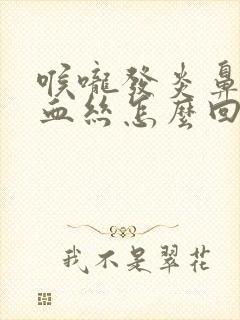 喉嚨發炎鼻
血絲怎麼回
我不是翠花